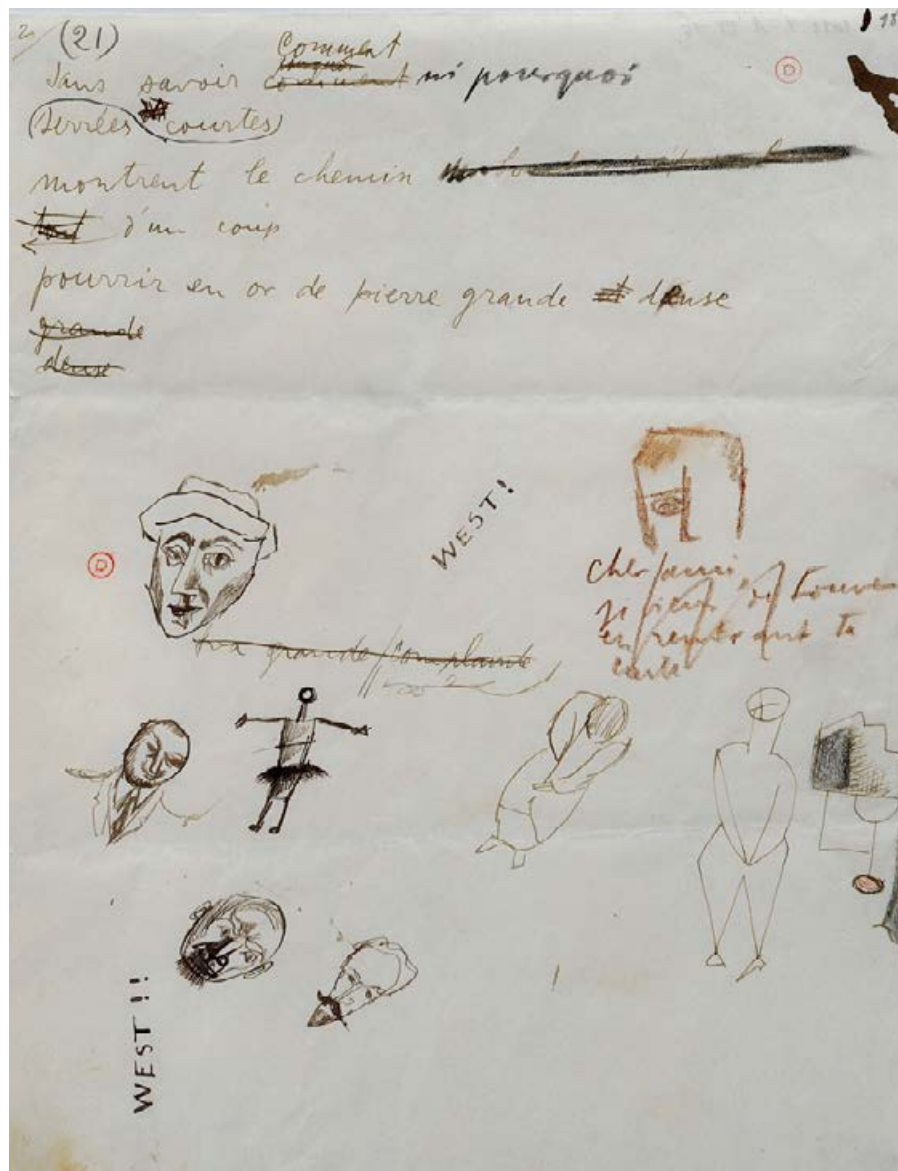 (21)
Comment
Sans savoir comment ni pourquoi
(serrées courtes)
montrent le chemin
tout d'un coup
pourrir en or de pierre grande et dense
grande
dense
WEST!
cher ami,
trouve
en rentrant ta
carte
ma grande complainte
WEST!!